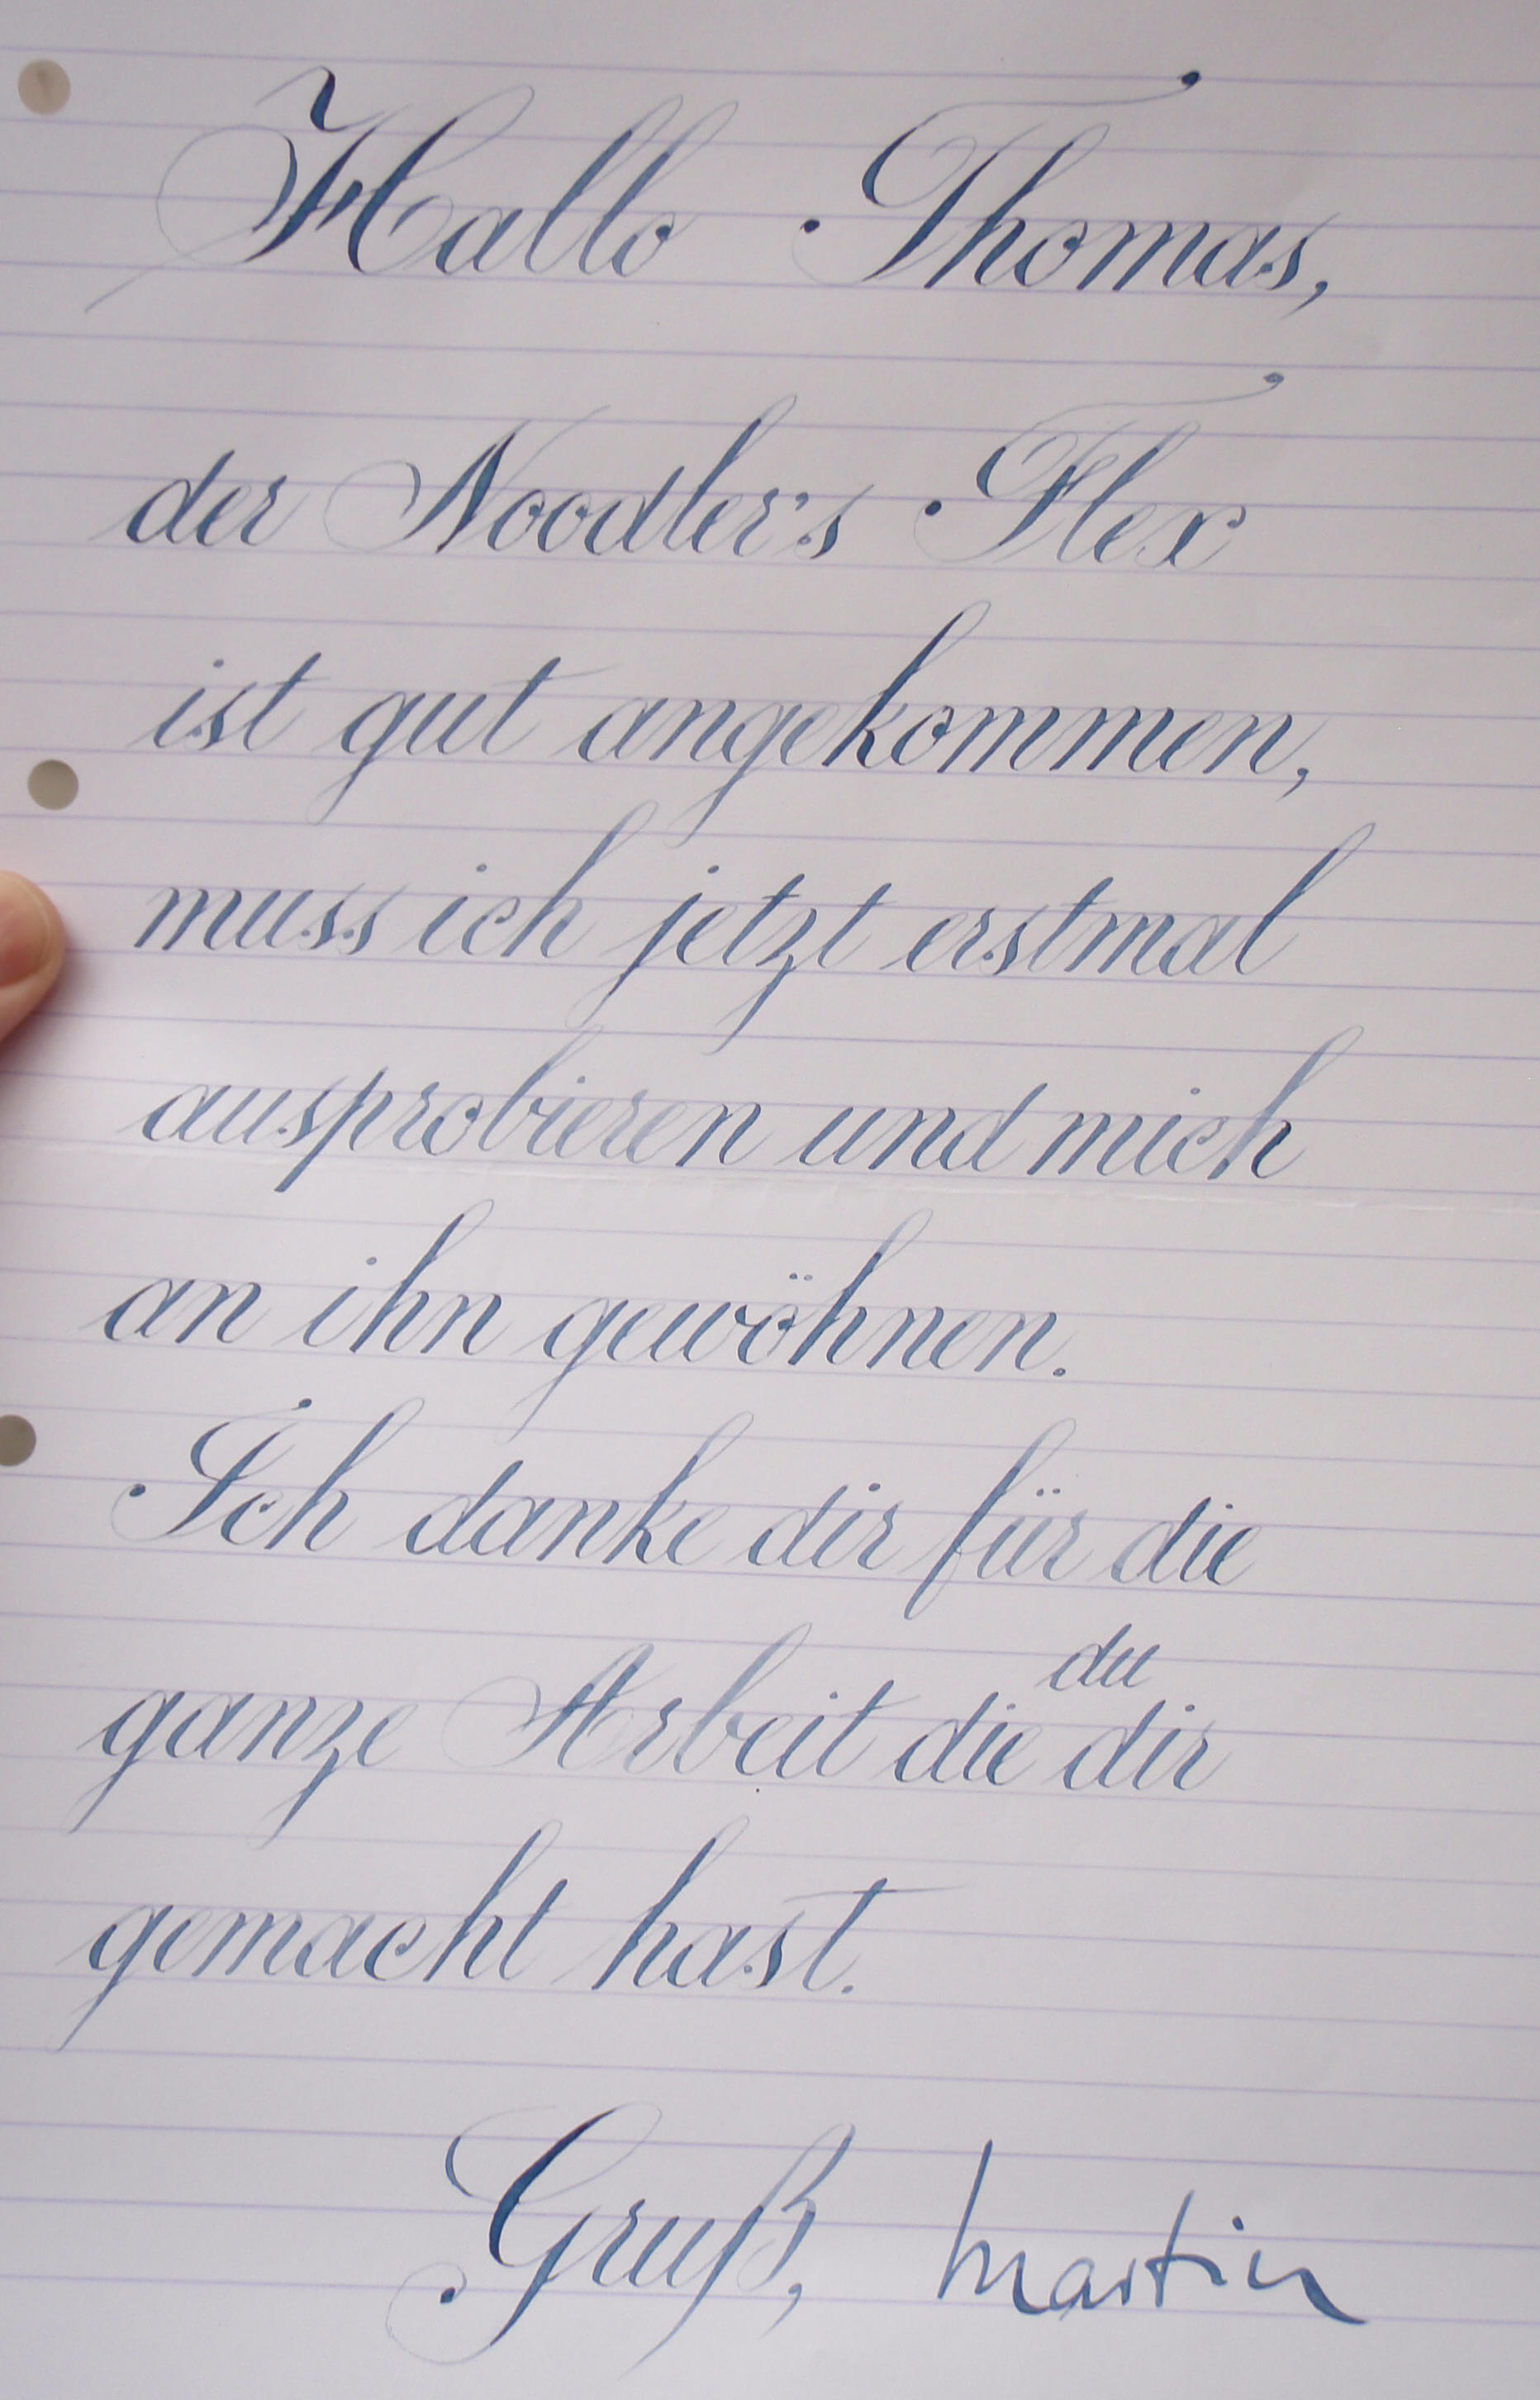 Hallo Thomas,
der Noodler's Flex
ist gut angekommen,
muss ich jetzt erstmal
ausprobieren und mich
an ihn gewöhnen.
Ich danke dir für die
ganze Arbeit die du dir
gemacht hast.
Gruß, Martin